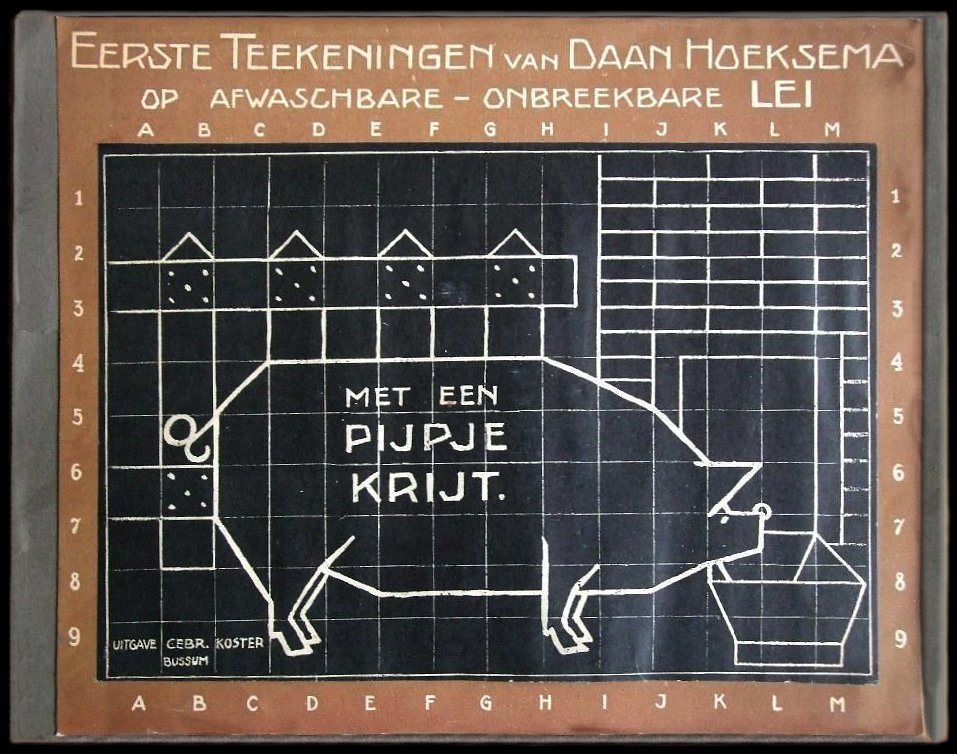 EERSTE TEEKENINGEN VAN DAAN HOEKSEMA
OP AFWASCHBARE - ONBREEKBARE LEI
A B C D E F G H I J K L M
1 1
2 2
3 3
4 4
MET EEN
5 5
PIJPJE
6 6
KRIJT.
7 7
8 8
9 9
UITGAVE GEBR. KOSTER
BUSSUM
A B C D E F G H I J K L M